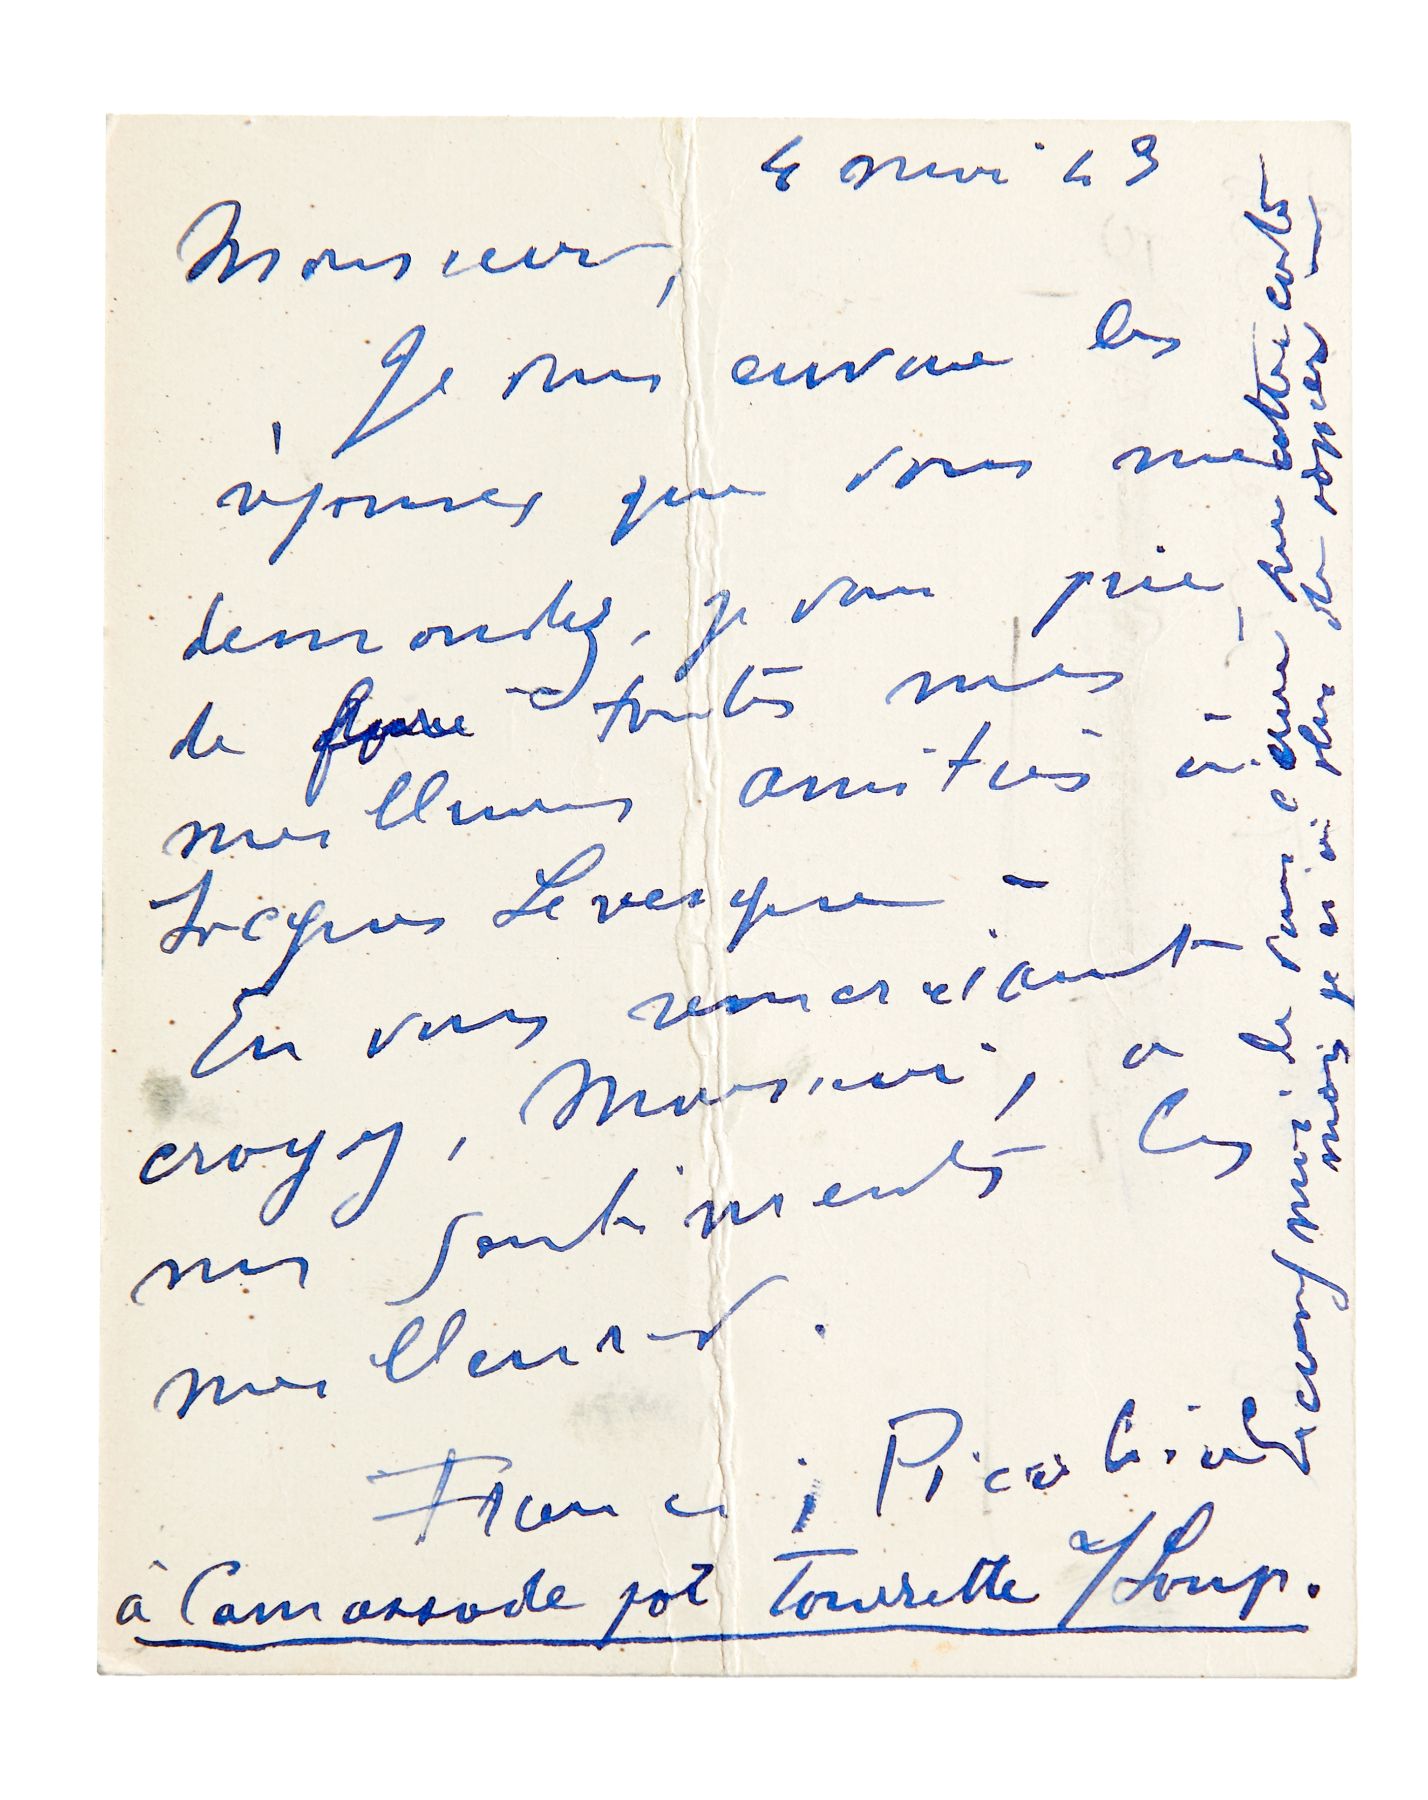 4 mai 49
Monsieur,
Je vous envoie les
réponses que vous me
demandez, je vous prie,
de faire toutes mes
meilleures amitiés à
Jacques Levesque –
En vous remerciant
croyez, Monsieur, à
mes sentiments les
meilleurs.
Francis Picabia
à Camassade pat Tourrette s/Loup.
Excusez moi de vous écrire sur cette carte
mais je n'ai plus de papier